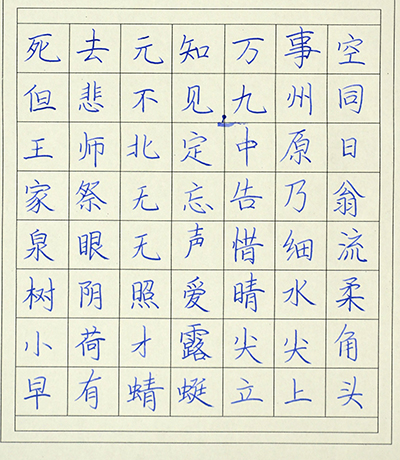 死去元知万事空
但悲不见九州同
王师北定中原日
家祭无忘告乃翁
泉眼无声惜细流
树阴照爱晴水柔
小荷才露尖尖角
早有蜻蜓立上头